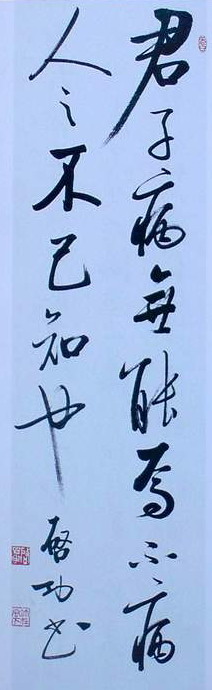 君子病無能焉不病
人之不己知也
啓功书